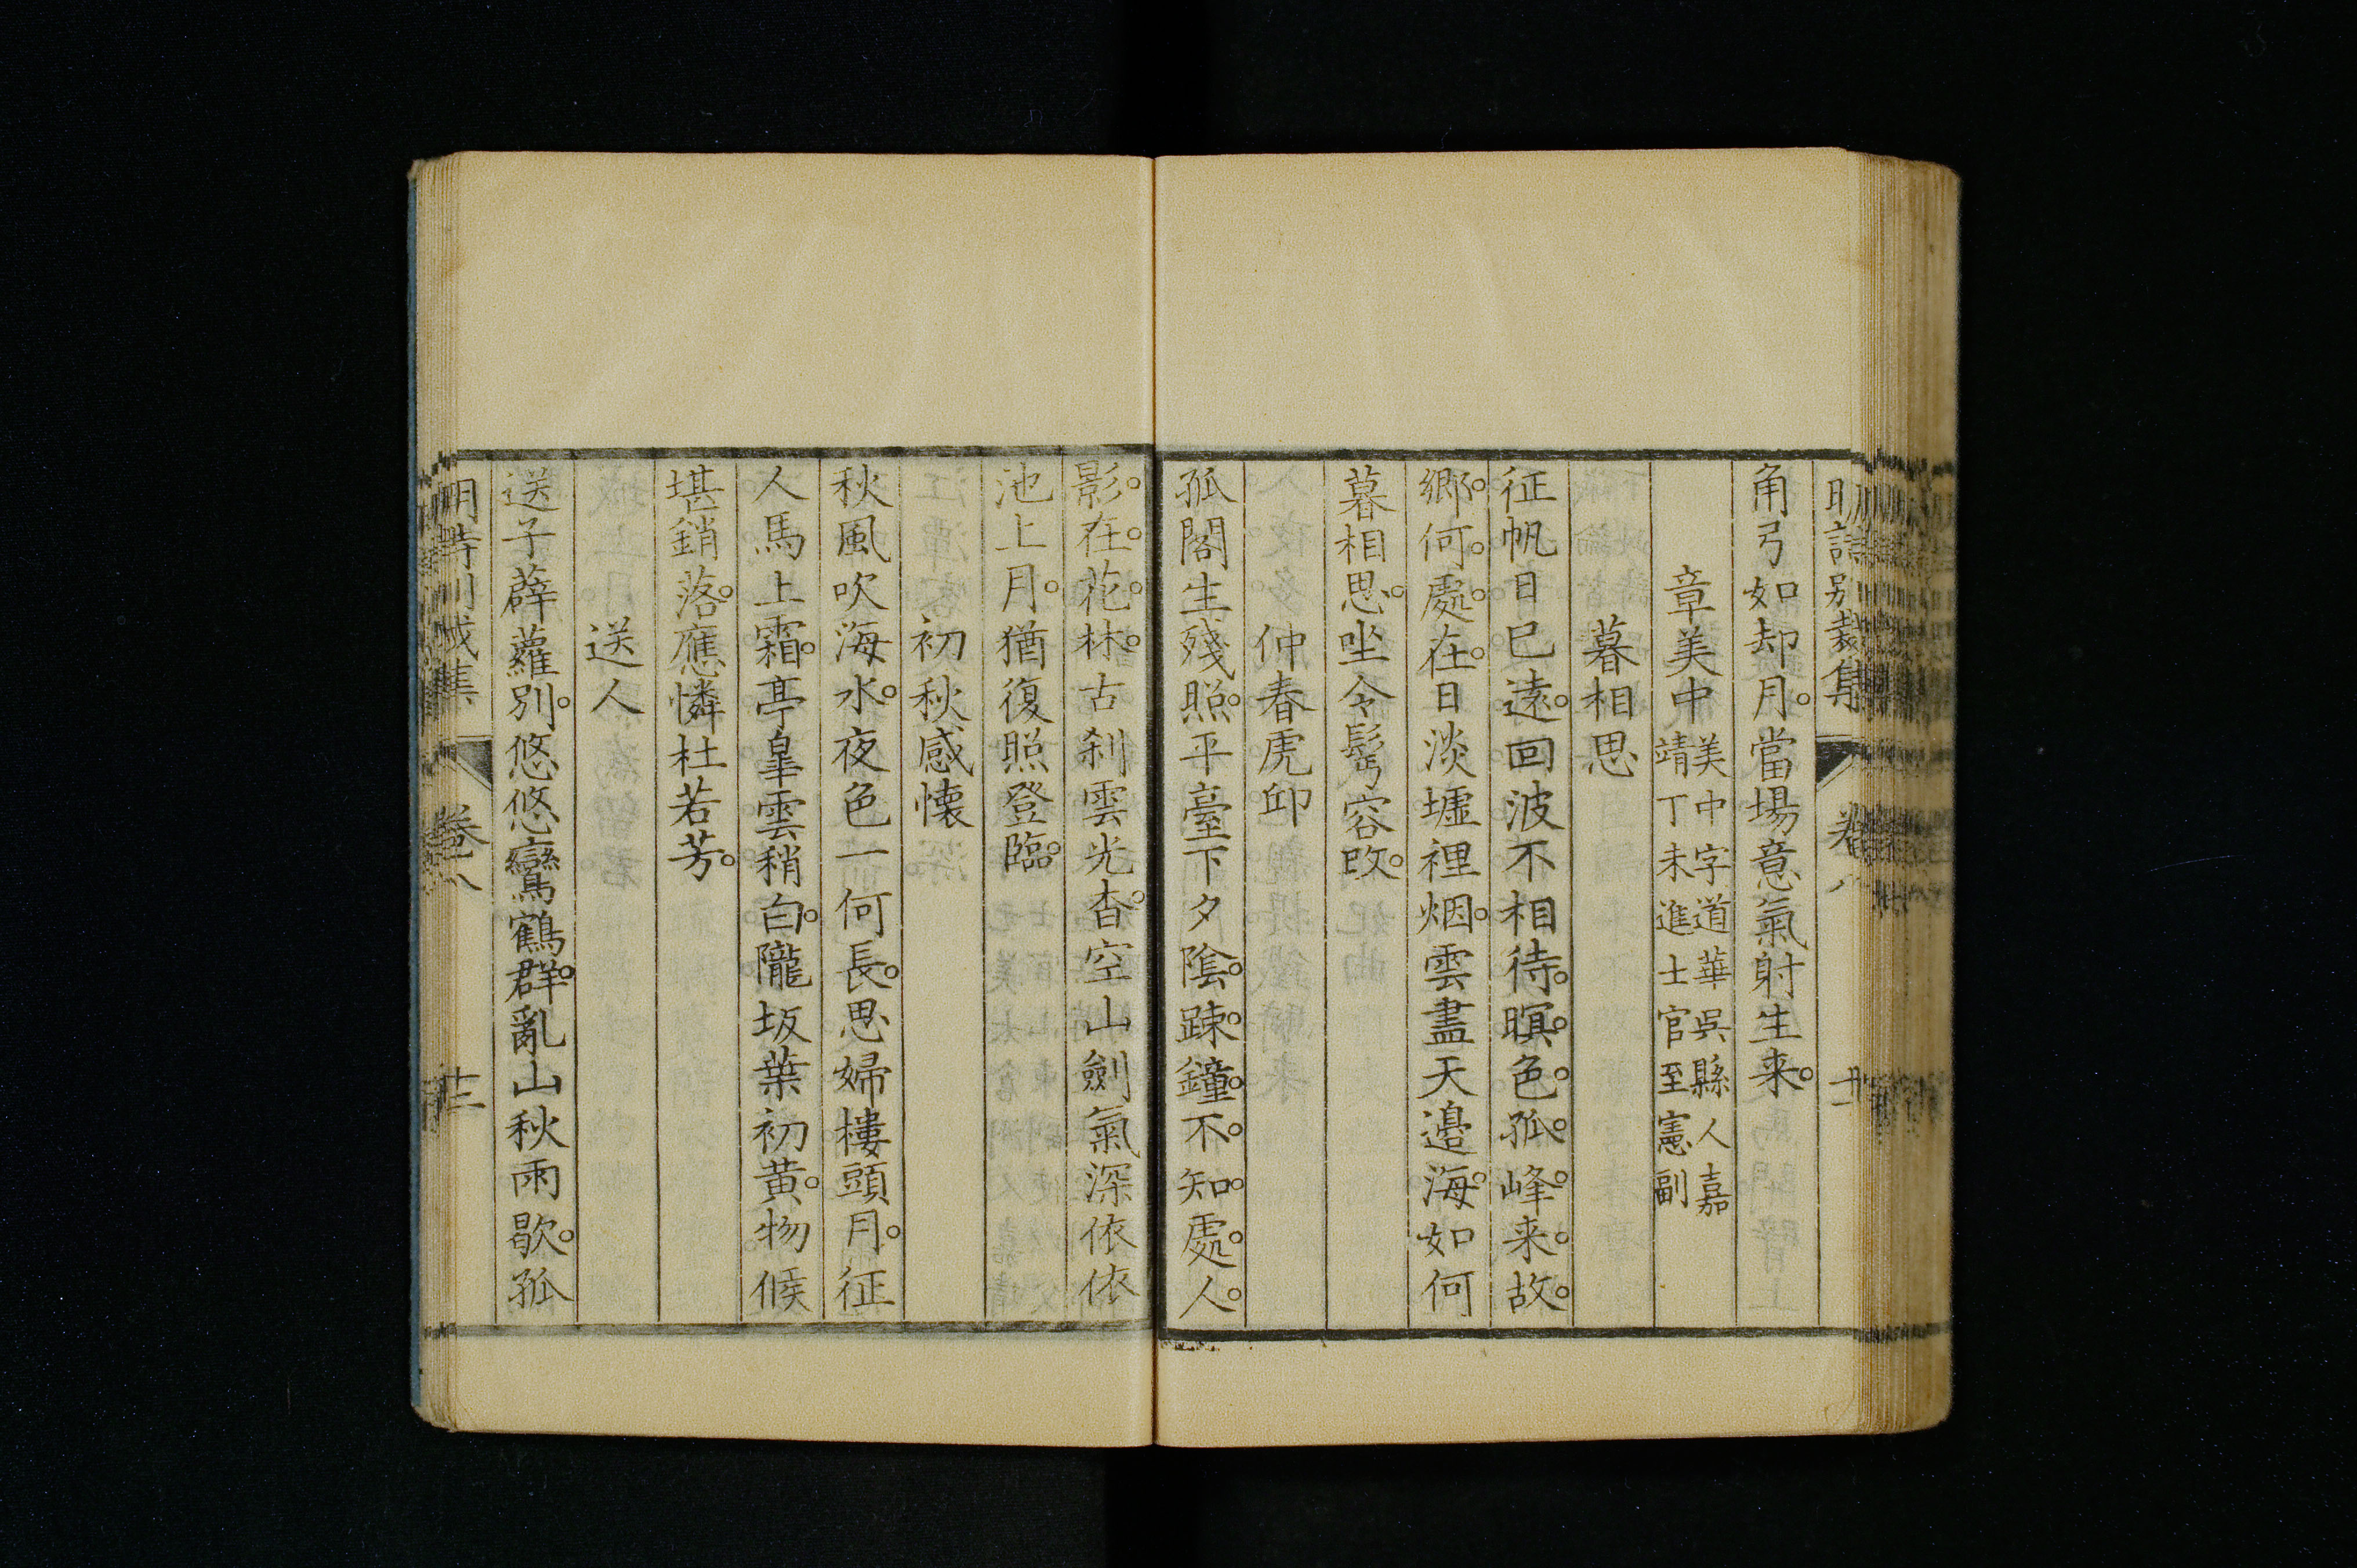 明詩別裁集 卷八
角弓如却月當場意氣射生来
章美中美中字道華吳縣人嘉靖丁未進士官至憲副
暮相思
征帆日已遠回波不相待暝色孤峰来故
鄉何處在日淡墟裡烟雲盡天邉海如何
暮相思坐令髩容改
仲春虎邱
孤閣生殘照平臺下夕陰踈鐘不知處人
影在花林古刹雲光杳空山劍氣深依依
池上月猶復照登臨
初秋感懐
秋風吹海水夜色一何長思婦樓頭月征
人馬上霜亭臯雲稍白隴坂葉初黄物候
堪銷落應憐杜若芳
送人
送子薜蘿別悠悠鸞鶴群亂山秋雨歇孤
卷八